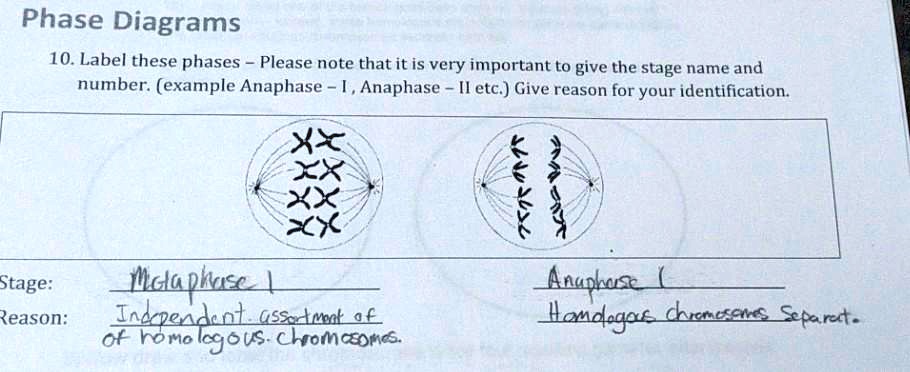 Phase Diagrams
10. Label these phases – Please note that it is very important to give the stage name and
number. (example Anaphase – I , Anaphase – II etc.) Give reason for your identification.
Stage: Metaphase I Anaphase I
Reason: Independent assortment of Homologous chromosomes Separat.
of homologous chromosomes.